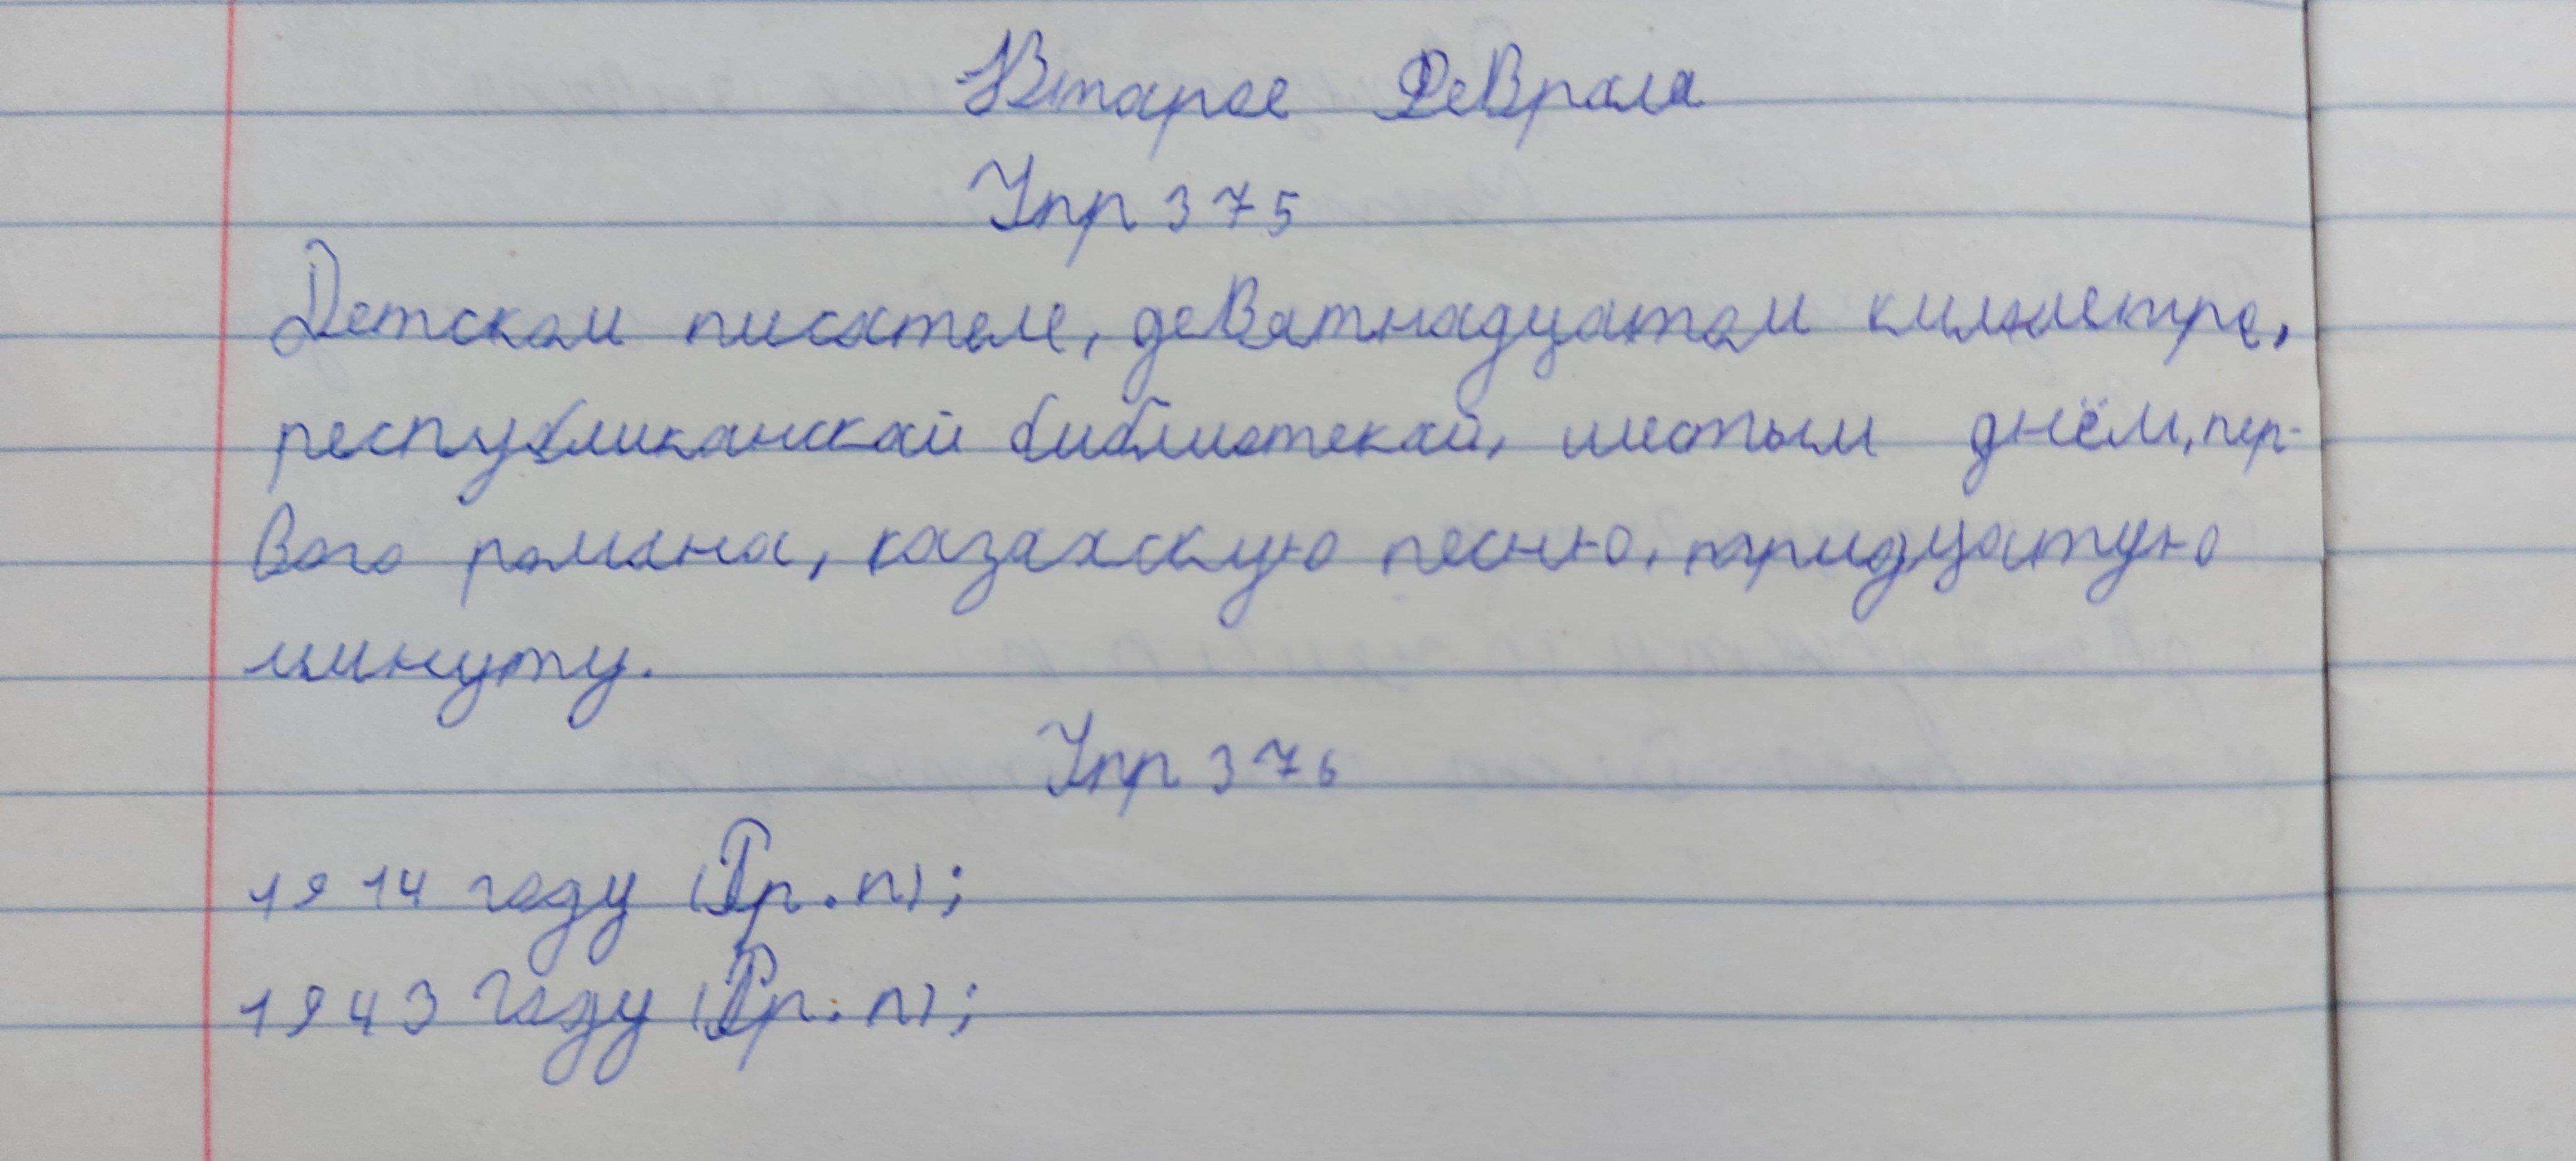 Второе Февраля
Упр 375
Детском писателе, девятнадцатом километре,
республиканской библиотекой, шестым днём, пер-
вого романа, казахскую песню, тридцатую
минуту.
Упр 376
1914 году (Пр. п);
1943 году (Пр. п);